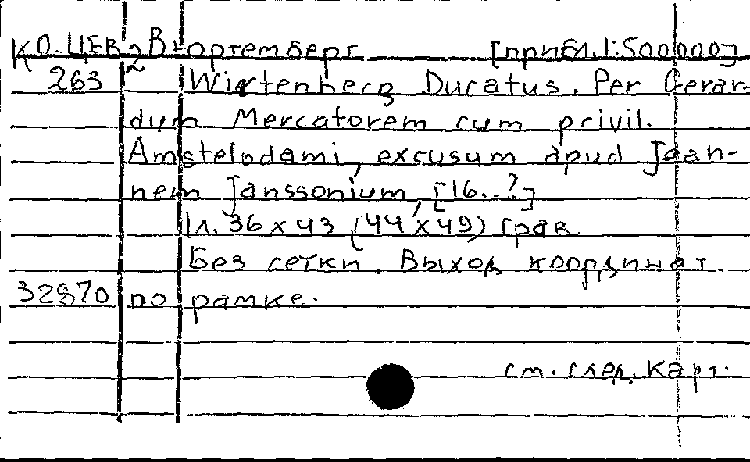 КО.ЦЕВ.2 Вюртемберг [прибл.1:500000]
263 Wirtenberg Ducatus. Per Gerar-
dum Mercatorem cum privil.
Amstelodami, excusum apud Joan-
nem Janssonium, [16..?]
1л. 36 x 43 (44 x 49) грав.
Без сетки. Выход координат
32870 по рамке.
см. след. карт.